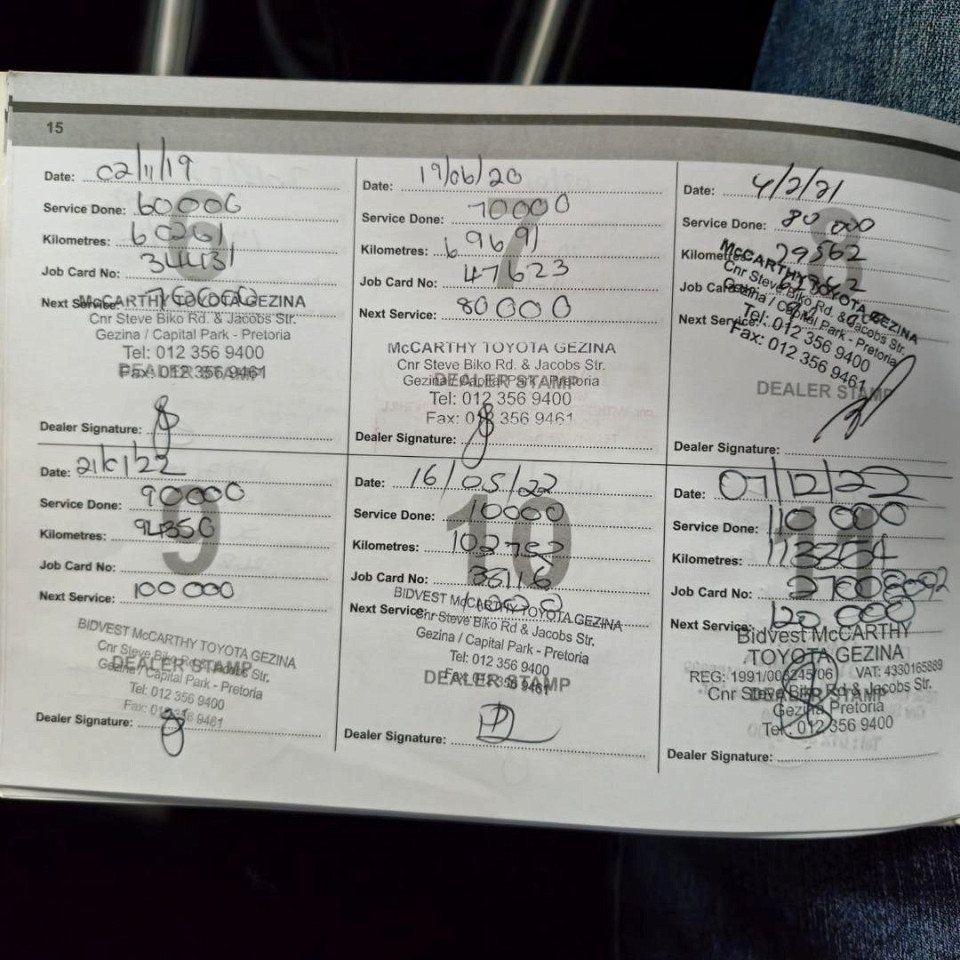 15
Date: 02/11/19
Service Done: 60000
Kilometres: 60261
Job Card No: 34431
Next Service: 70000
McCARTHY TOYOTA GEZINA
Cnr Steve Biko Rd. & Jacobs Str.
Gezina / Capital Park - Pretoria
Tel: 012 356 9400
Fax: 012 356 9461
DEALER STAMP
Dealer Signature:
7
Date: 19/06/20
Service Done: 70000
Kilometres: 69691
Job Card No: 47623
Next Service: 80000
McCARTHY TOYOTA GEZINA
Cnr Steve Biko Rd. & Jacobs Str.
Gezina / Capital Park - Pretoria
DEALER STAMP
Tel: 012 356 9400
Fax: 012 356 9461
Dealer Signature:
8
Date: 4/2/21
Service Done: 80 000
Kilometres: 79562
Job Card No:
Next Service:
McCARTHY TOYOTA GEZINA
Cnr Steve Biko Rd. & Jacobs Str.
Gezina / Capital Park - Pretoria
Tel: 012 356 9400
Fax: 012 356 9461
DEALER STAMP
Dealer Signature:
9
Date:
Service Done: 90000
Kilometres: 94350
Job Card No:
Next Service: 100 000
BIDVEST McCARTHY TOYOTA GEZINA
Cnr Steve Biko Rd & Jacobs Str.
DEALER STAMP
Gezina / Capital Park - Pretoria
Tel: 012 356 9400
Fax: 012 356 9461
Dealer Signature:
10
Date: 16/05/22
Service Done: 10000
Kilometres: 103782
Job Card No: 38116
Next Service:
BIDVEST McCARTHY TOYOTA GEZINA
Cnr Steve Biko Rd & Jacobs Str.
Gezina / Capital Park - Pretoria
Tel: 012 356 9400
Fax: 012 356 9461
DEALER STAMP
Dealer Signature:
11
Date: 07/12/22
Service Done: 110 000
Kilometres: 113354
Job Card No:
Next Service: 120 000
Bidvest McCARTHY
TOYOTA GEZINA
REG: 1991/006245/06 VAT: 4330165889
Cnr Steve Biko Rd & Jacobs Str.
DEALER STAMP
Gezina Pretoria
Tel: 012 356 9400
Dealer Signature: